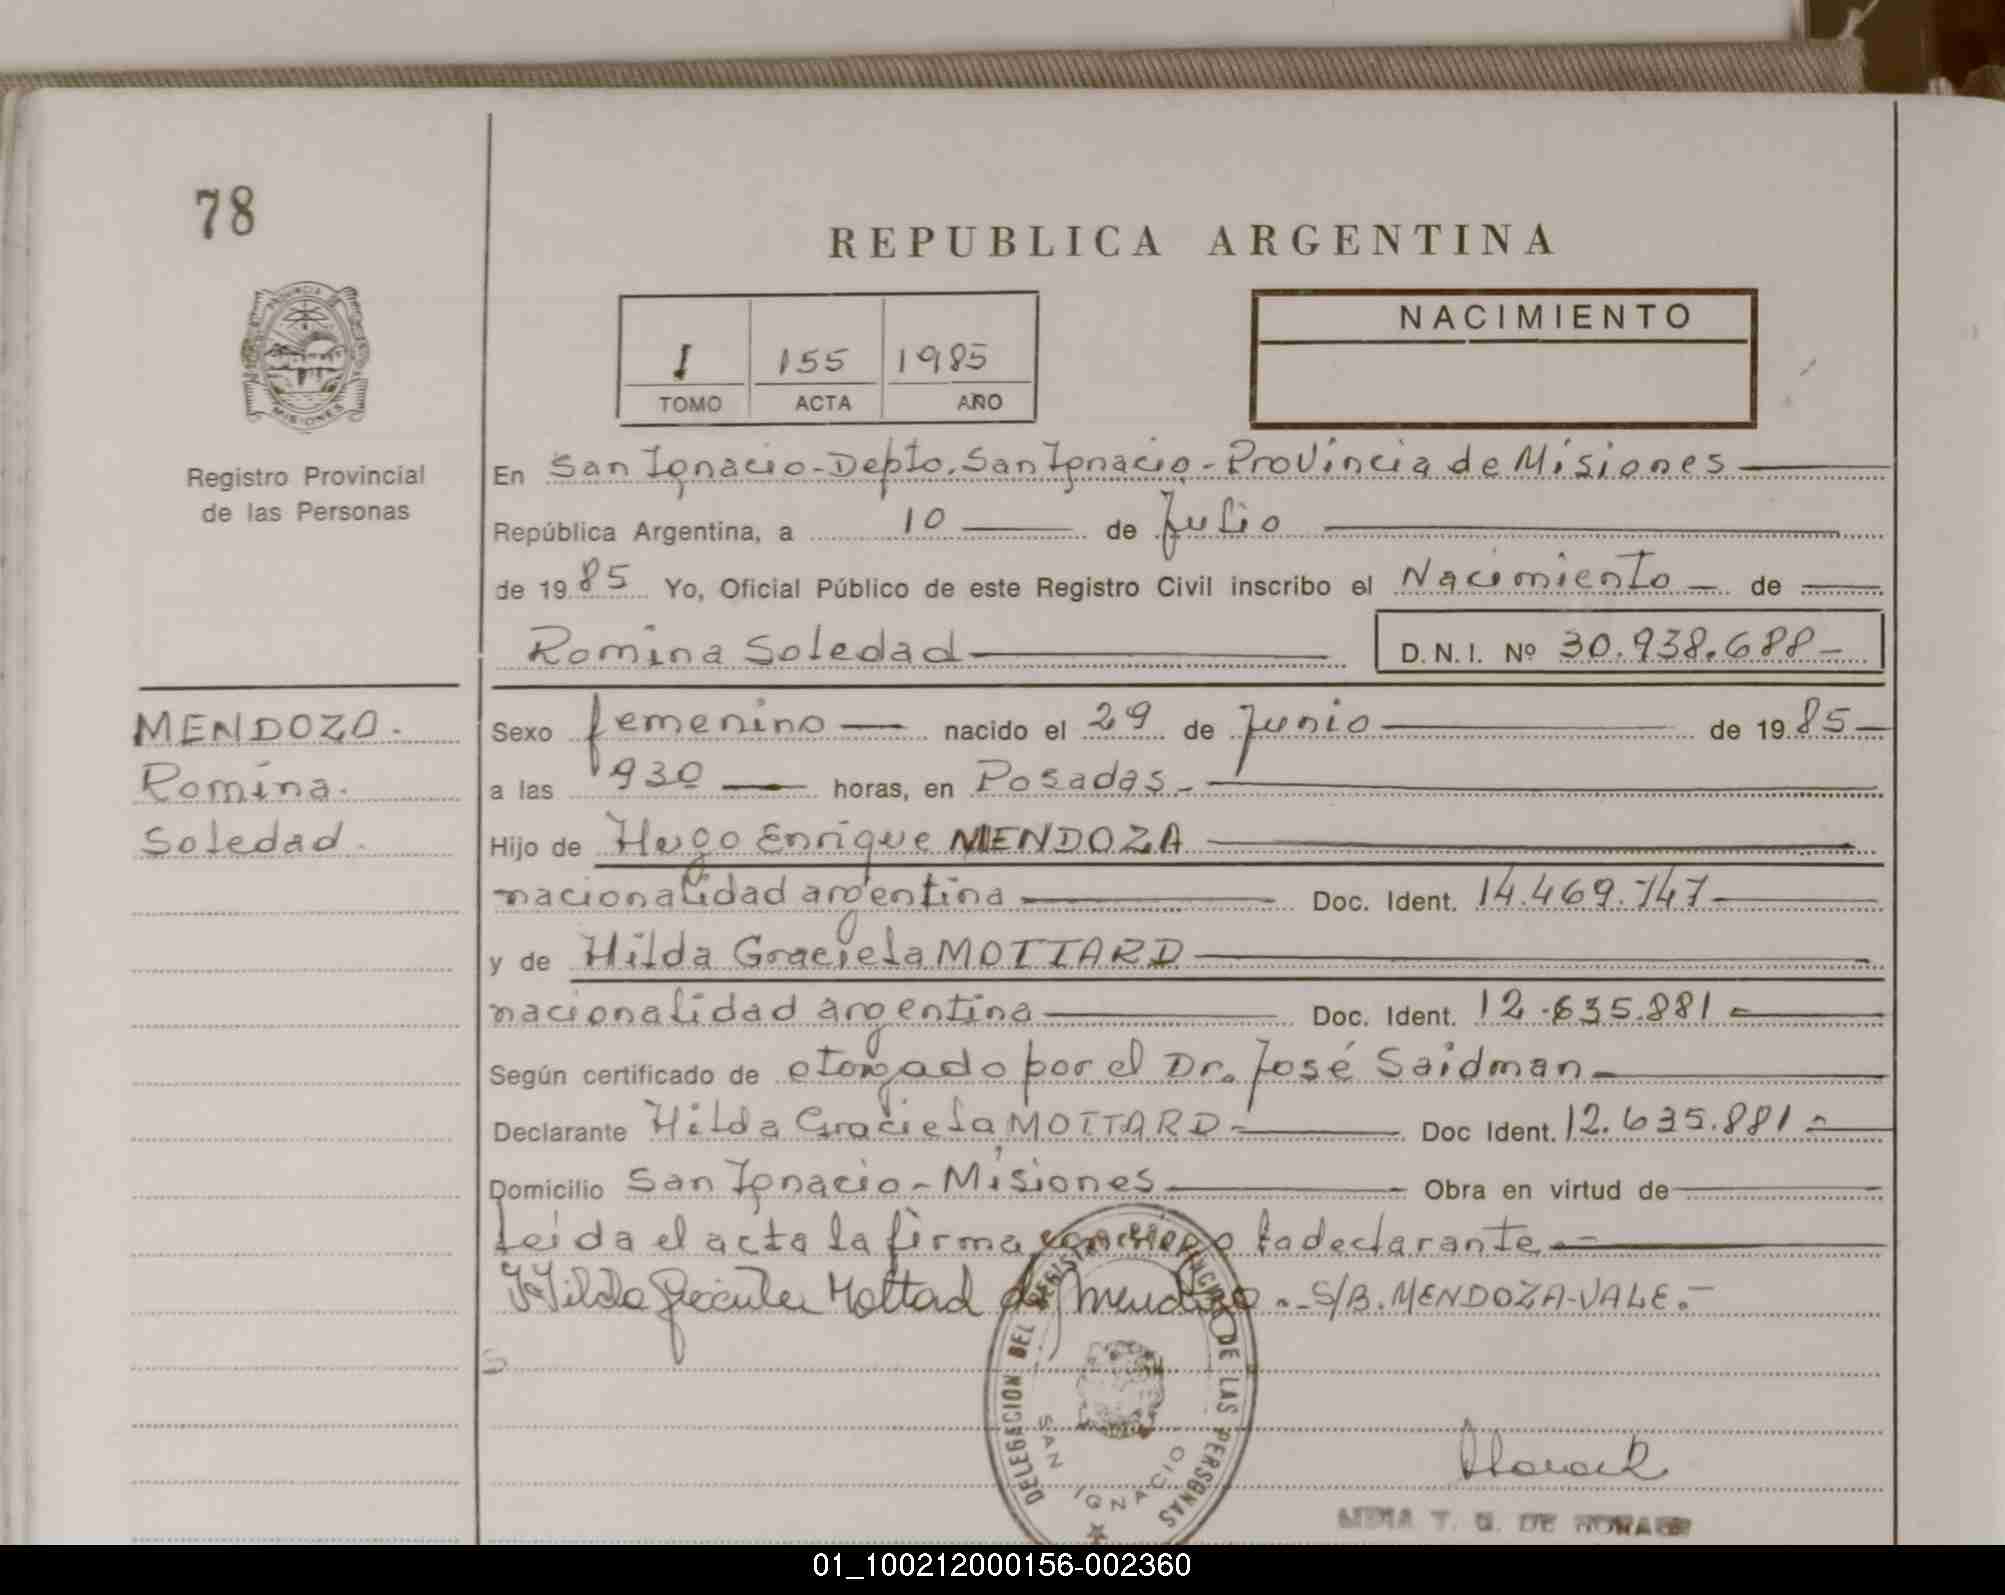 78
REPUBLICA ARGENTINA
PROVINCIA DE
MISIONES
Registro Provincial
de las Personas
I 155 1985
TOMO ACTA AÑO
NACIMIENTO
En San Ignacio - Depto. San Ignacio - Provincia de Misiones
República Argentina, a 10 de Julio
de 1985 Yo, Oficial Público de este Registro Civil inscribo el Nacimiento de
Romina Soledad D.N.I. Nº 30.938.688
MENDOZA.
Romina.
Soledad.
Sexo femenino nacido el 29 de Junio de 1985
a las 930 horas, en Posadas.
Hijo de Hugo Enrique MENDOZA
nacionalidad argentina Doc. Ident. 14.469.747
y de Hilda Graciela MOTTARD
nacionalidad argentina Doc. Ident. 12.635.881
Según certificado de otorgado por el Dr. José Saidman
Declarante Hilda Graciela MOTTARD Doc Ident. 12.635.881
Domicilio San Ignacio - Misiones Obra en virtud de
Leída el acta la firma conmigo la declarante.-
Hilda Graciela Mottard de Mendoza.- S/B. MENDOZA-VALE.-
DELEGACION DEL REGISTRO PROVINCIAL DE LAS PERSONAS
SAN IGNACIO
01_100212000156-002360